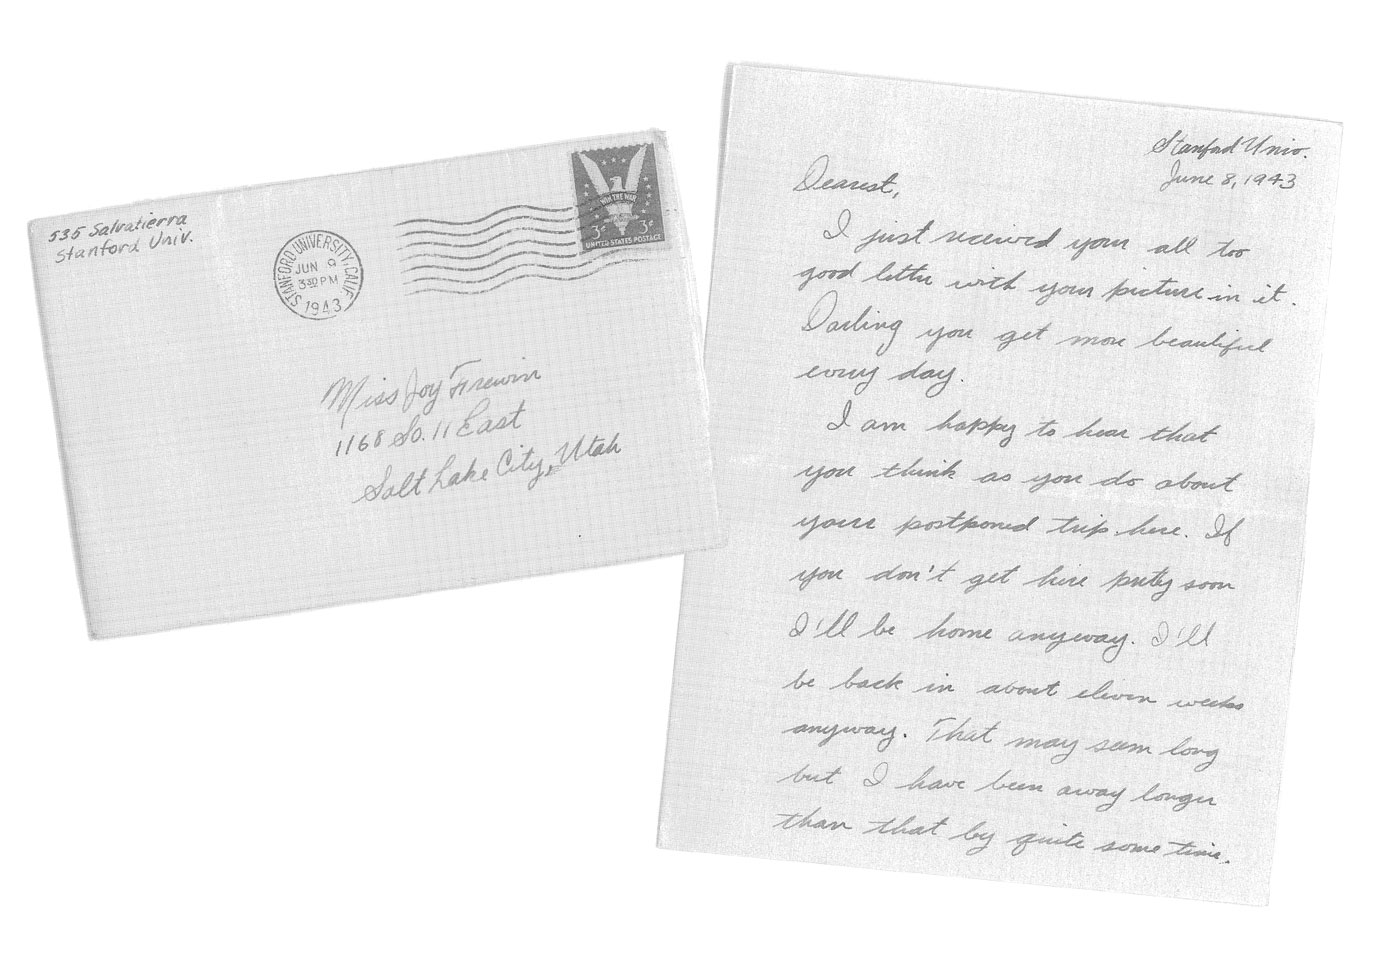 535 Salvatierra
Stanford Univ.
STANFORD UNIVERSITY, CALIF.
JUN 9
3 30 PM
1943
WIN THE WAR
3¢ 3¢
UNITED STATES POSTAGE
Miss Joy Firewin
1168 So. 11 East
Salt Lake City, Utah
Stanford Univ.
June 8, 1943
Dearest,
I just received your all too
good letter with your picture in it.
Darling you get more beautiful
every day.
I am happy to hear that
you think as you do about
your postponed trip here. If
you don't get here prety soon
I'll be home anyway. I'll
be back in about eleven weeks
anyway. That may seem long
but I have been away longer
than that by quite some time.